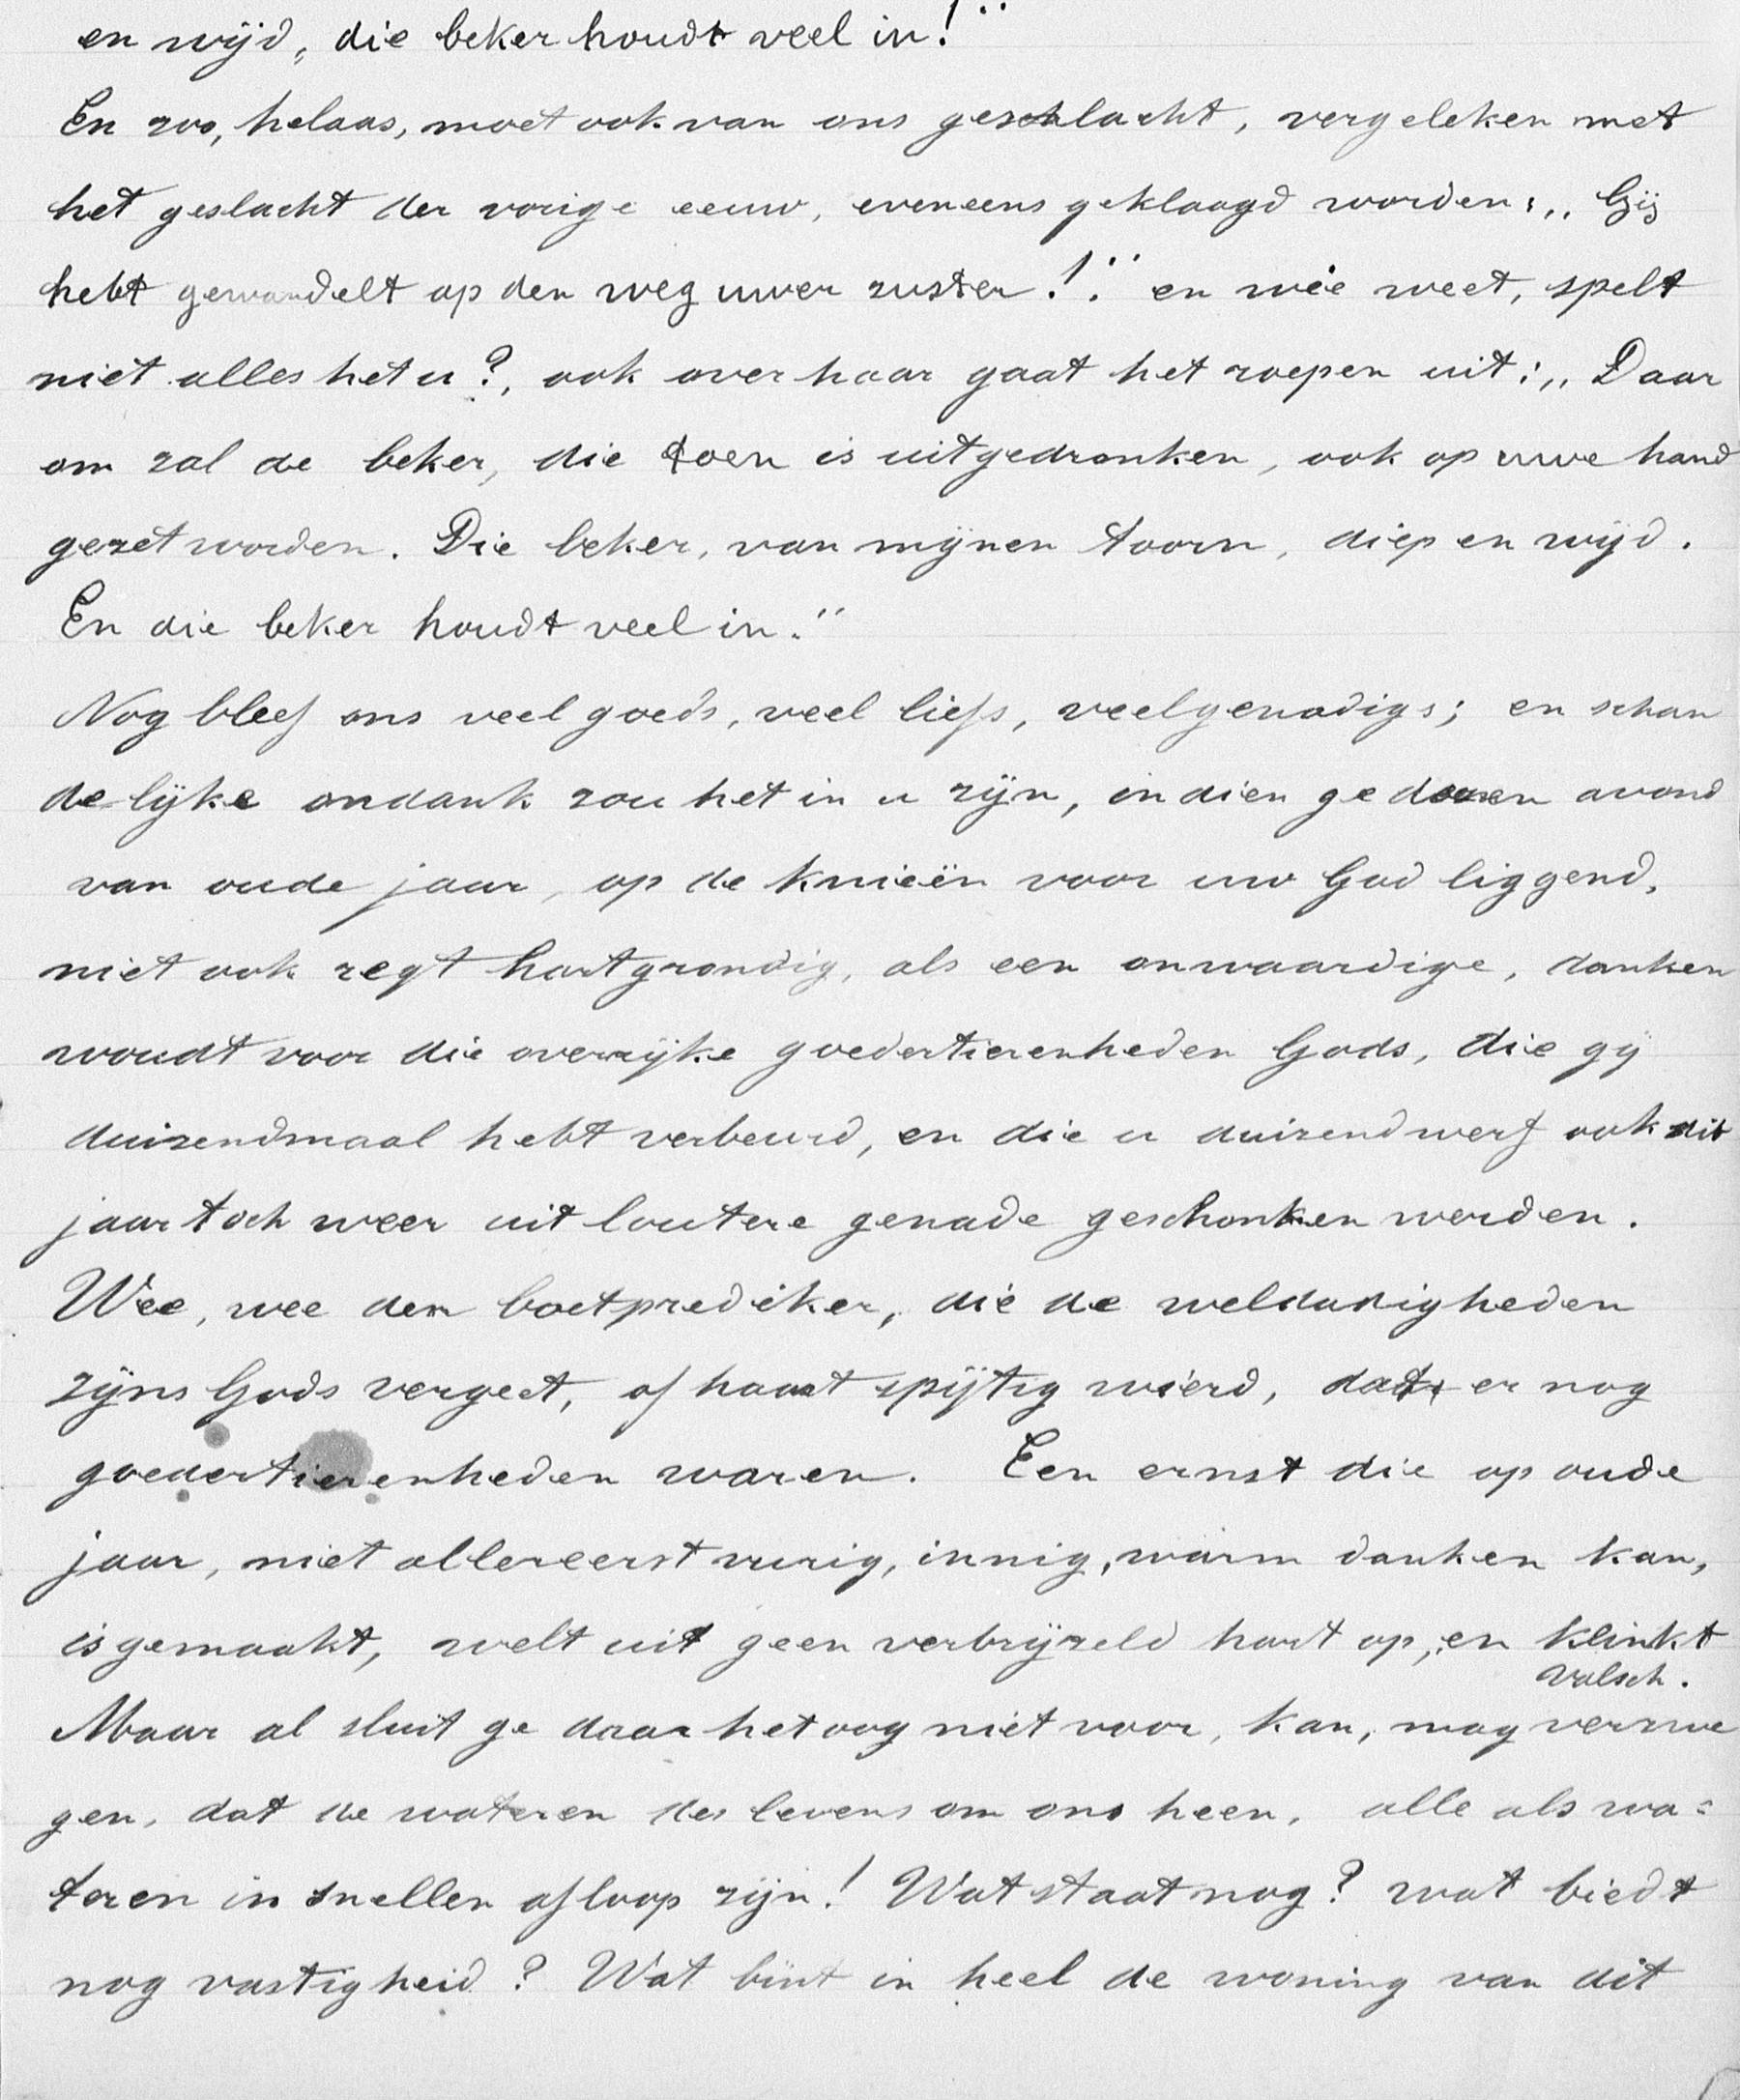 en wijd, die beker houdt veel in!"
En zoo, helaas, moet ook van ons geschlacht, vergeleken met
het geslacht der vorige eeuw, eveneens geklaagd worden: „Gij
hebt gewandelt op den weg uwer zuster!" en wie weet, spelt
niet alles het u?, ook over haar gaat het roepen uit: „Daar
om zal de beker, die toen is uitgedronken, ook op uwe hand
gezet worden. Die beker, van mijnen toorn, diep en wijd.
En die beker houdt veel in."
Nog bleef ons veel goeds, veel liefs, veel genadigs; en schan
delijke ondank zou het in u zijn, indien ge dezen avond
van oude jaar, op de knieën voor uw God liggend,
niet ook regt hartgrondig, als een onwaardige, danken
woudt voor die overrijke goedertierenheden Gods, die gij
duizendmaal hebt verbeurd, en die u duizendwerf ook dit
jaar toch weer uit loutere genade geschonken werden.
Wee, wee den boetprediker, die de weldadigheden
zijns Gods vergeet, of haast spijtig wierd, dat er nog
goedertierenheden waren. Een ernst die op oude
jaar, niet allereerst vurig, innig, warm danken kan,
is gemaakt, welt uit geen verbrijzeld hart op, en klinkt
valsch.
Maar al sluit ge daar het oog niet voor, kan, mag verzwe
gen, dat de wateren des levens om ons heen, alle als wa=
teren in snellen afloop zijn! Wat staat nog? wat biedt
nog vastigheid? Wat bint in heel de woning van dit